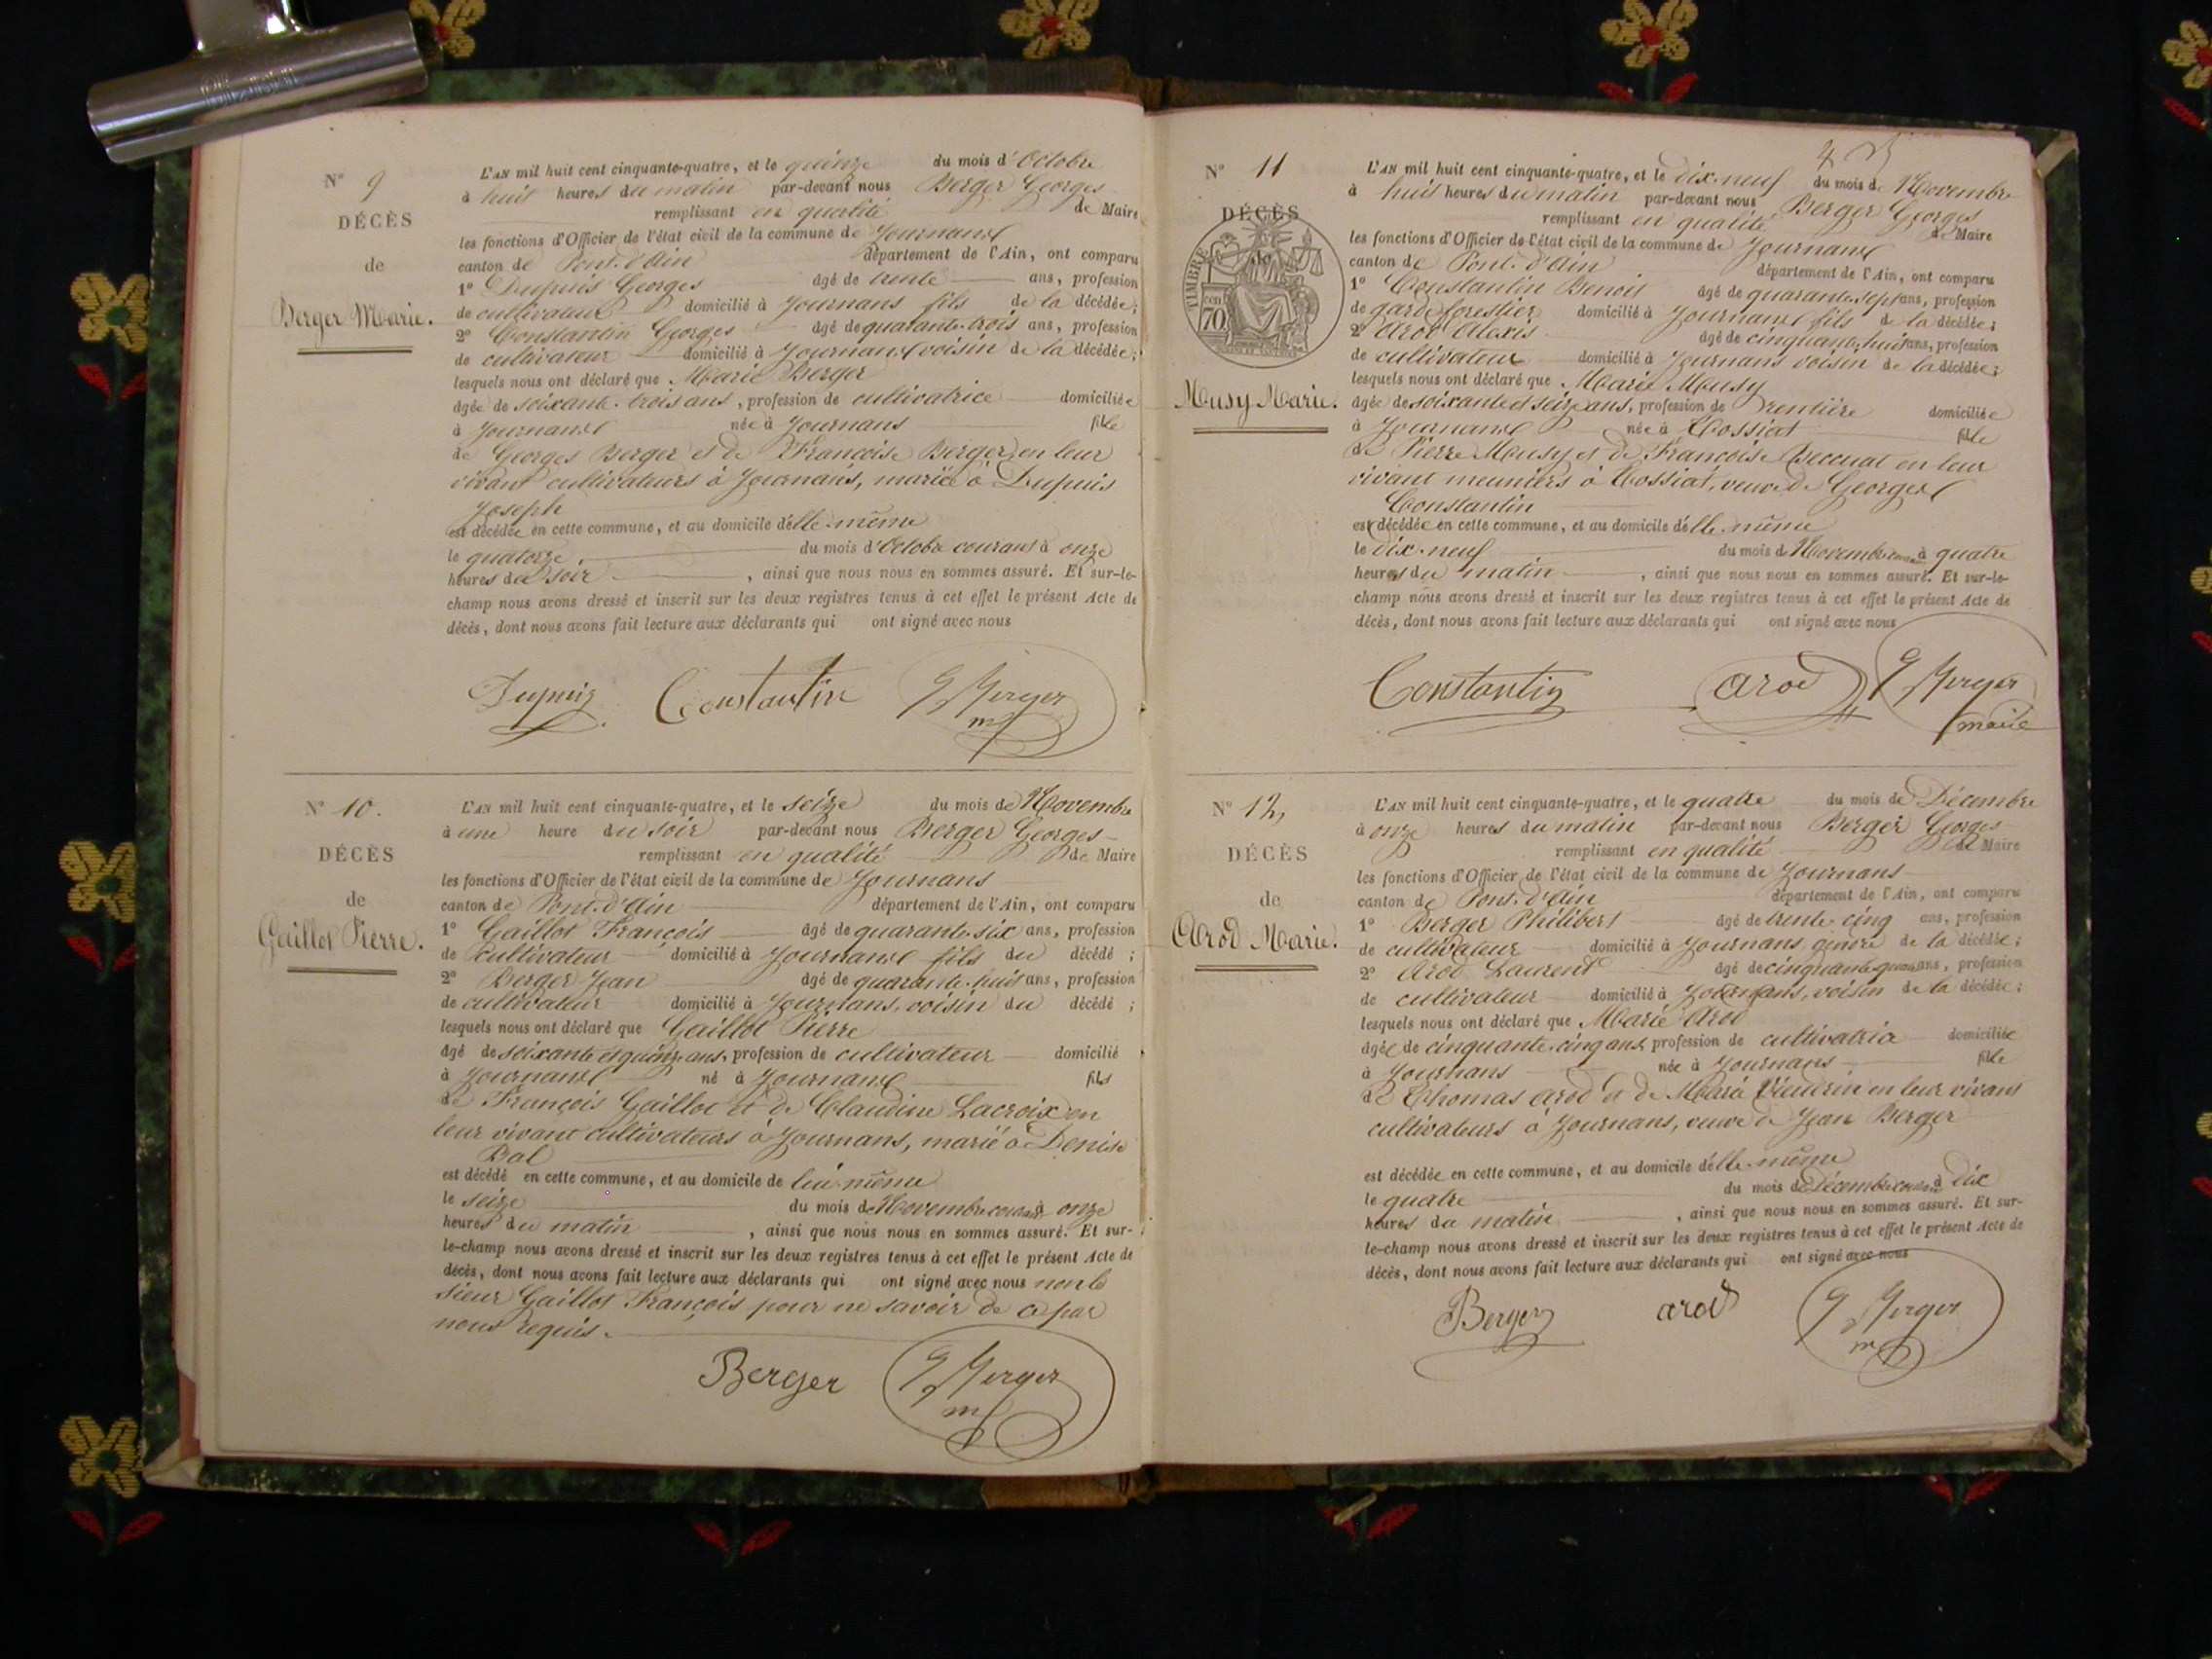 N° 9
DÉCÈS
de
Berger Marie.
L'AN mil huit cent cinquante-quatre, et le quinze du mois d'Octobre
à huit heures du matin par-devant nous Berger Georges
remplissant en qualité de Maire
les fonctions d'Officier de l'état civil de la commune de Journans
canton de Pont-d'Ain département de l'Ain, ont comparu
1° Dupuis Georges âgé de trente ans, profession
de cultivateur domicilié à Journans fils de la décédée;
2° Constantin Georges âgé de quarante-trois ans, profession
de cultivateur domicilié à Journans voisin de la décédée;
lesquels nous ont déclaré que Marie Berger
âgée de soixante-trois ans, profession de cultivatrice domiciliée
à Journans née à Journans fille
de Georges Berger et de Françoise Berger en leur
vivant cultivateurs à Journans, mariée à Dupuis
Joseph
est décédée en cette commune, et au domicile d'elle-même
le quatorze du mois d'Octobre courant à onze
heures du soir, ainsi que nous nous en sommes assuré. Et sur-le-
champ nous avons dressé et inscrit sur les deux registres tenus à cet effet le présent Acte de
décès, dont nous avons fait lecture aux déclarants qui ont signé avec nous
Dupuis Constantin G Berger
m
N° 10.
DÉCÈS
de
Gaillot Pierre.
L'AN mil huit cent cinquante-quatre, et le seize du mois de Novembre
à une heure du soir par-devant nous Berger Georges
remplissant en qualité de Maire
les fonctions d'Officier de l'état civil de la commune de Journans
canton de Pont-d'Ain département de l'Ain, ont comparu
1° Gaillot François âgé de quarante-six ans, profession
de cultivateur domicilié à Journans fils du décédé;
2° Berger Jean âgé de quarante-huit ans, profession
de cultivateur domicilié à Journans, voisin du décédé;
lesquels nous ont déclaré que Gaillot Pierre
âgé de soixante et quinze ans, profession de cultivateur domicilié
à Journans né à Journans fils
de François Gaillot et de Claudine Lacroix en
leur vivant cultivateurs à Journans, marié à Denise
Bal
est décédé en cette commune, et au domicile de lui-même
le seize du mois de Novembre courant à onze
heures du matin, ainsi que nous nous en sommes assuré. Et sur-
le-champ nous avons dressé et inscrit sur les deux registres tenus à cet effet le présent Acte de
décès, dont nous avons fait lecture aux déclarants qui ont signé avec nous non le
sieur Gaillot François pour ne savoir de ce par
nous requis.
Berger G Berger
m
N° 11
DÉCÈS
de
TIMBRE
70
Musy Marie.
L'AN mil huit cent cinquante-quatre, et le dix-neuf du mois de Novembre
à huit heures du matin par-devant nous Berger Georges
remplissant en qualité de Maire
les fonctions d'Officier de l'état civil de la commune de Journans
canton de Pont-d'Ain département de l'Ain, ont comparu
1° Constantin Benoit âgé de quarante-sept ans, profession
de garde forestier domicilié à Journans fils de la décédée;
2° Arod Alexis âgé de cinquante-huit ans, profession
de cultivateur domicilié à Journans voisin de la décédée;
lesquels nous ont déclaré que Marie Musy
âgée de soixante et seize ans, profession de rentière domiciliée
à Journans née à Tossiat fille
de Pierre Musy et de Françoise Beccuat en leur
vivant meuniers à Tossiat, veuve de Georges
Constantin
est décédée en cette commune, et au domicile d'elle-même
le dix-neuf du mois de Novembre à quatre
heures du matin, ainsi que nous nous en sommes assuré. Et sur-le-
champ nous avons dressé et inscrit sur les deux registres tenus à cet effet le présent Acte de
décès, dont nous avons fait lecture aux déclarants qui ont signé avec nous
Constantin Arod G Berger
maire
N° 12,
DÉCÈS
de
Arod Marie.
L'AN mil huit cent cinquante-quatre, et le quatre du mois de Décembre
à onze heures du matin par-devant nous Berger Georges
remplissant en qualité de Maire
les fonctions d'Officier de l'état civil de la commune de Journans
canton de Pont-d'Ain département de l'Ain, ont comparu
1° Berger Philibert âgé de trente-cinq ans, profession
de cultivateur domicilié à Journans gendre de la décédée;
2° Arod Laurent âgé de cinquante-quatre ans, profession
de cultivateur domicilié à Journans, voisin de la décédée;
lesquels nous ont déclaré que Marie Arod
âgée de cinquante-cinq ans, profession de cultivatrice domiciliée
à Journans née à Journans fille
de Thomas Arod et de Marie en leur vivant
cultivateurs à Journans, veuve de Jean Berger
est décédée en cette commune, et au domicile d'elle-même
le quatre du mois de Décembre courant à dix
heures du matin, ainsi que nous nous en sommes assuré. Et sur-
le-champ nous avons dressé et inscrit sur les deux registres tenus à cet effet le présent Acte de
décès, dont nous avons fait lecture aux déclarants qui ont signé avec nous
Berger arod G Berger
m